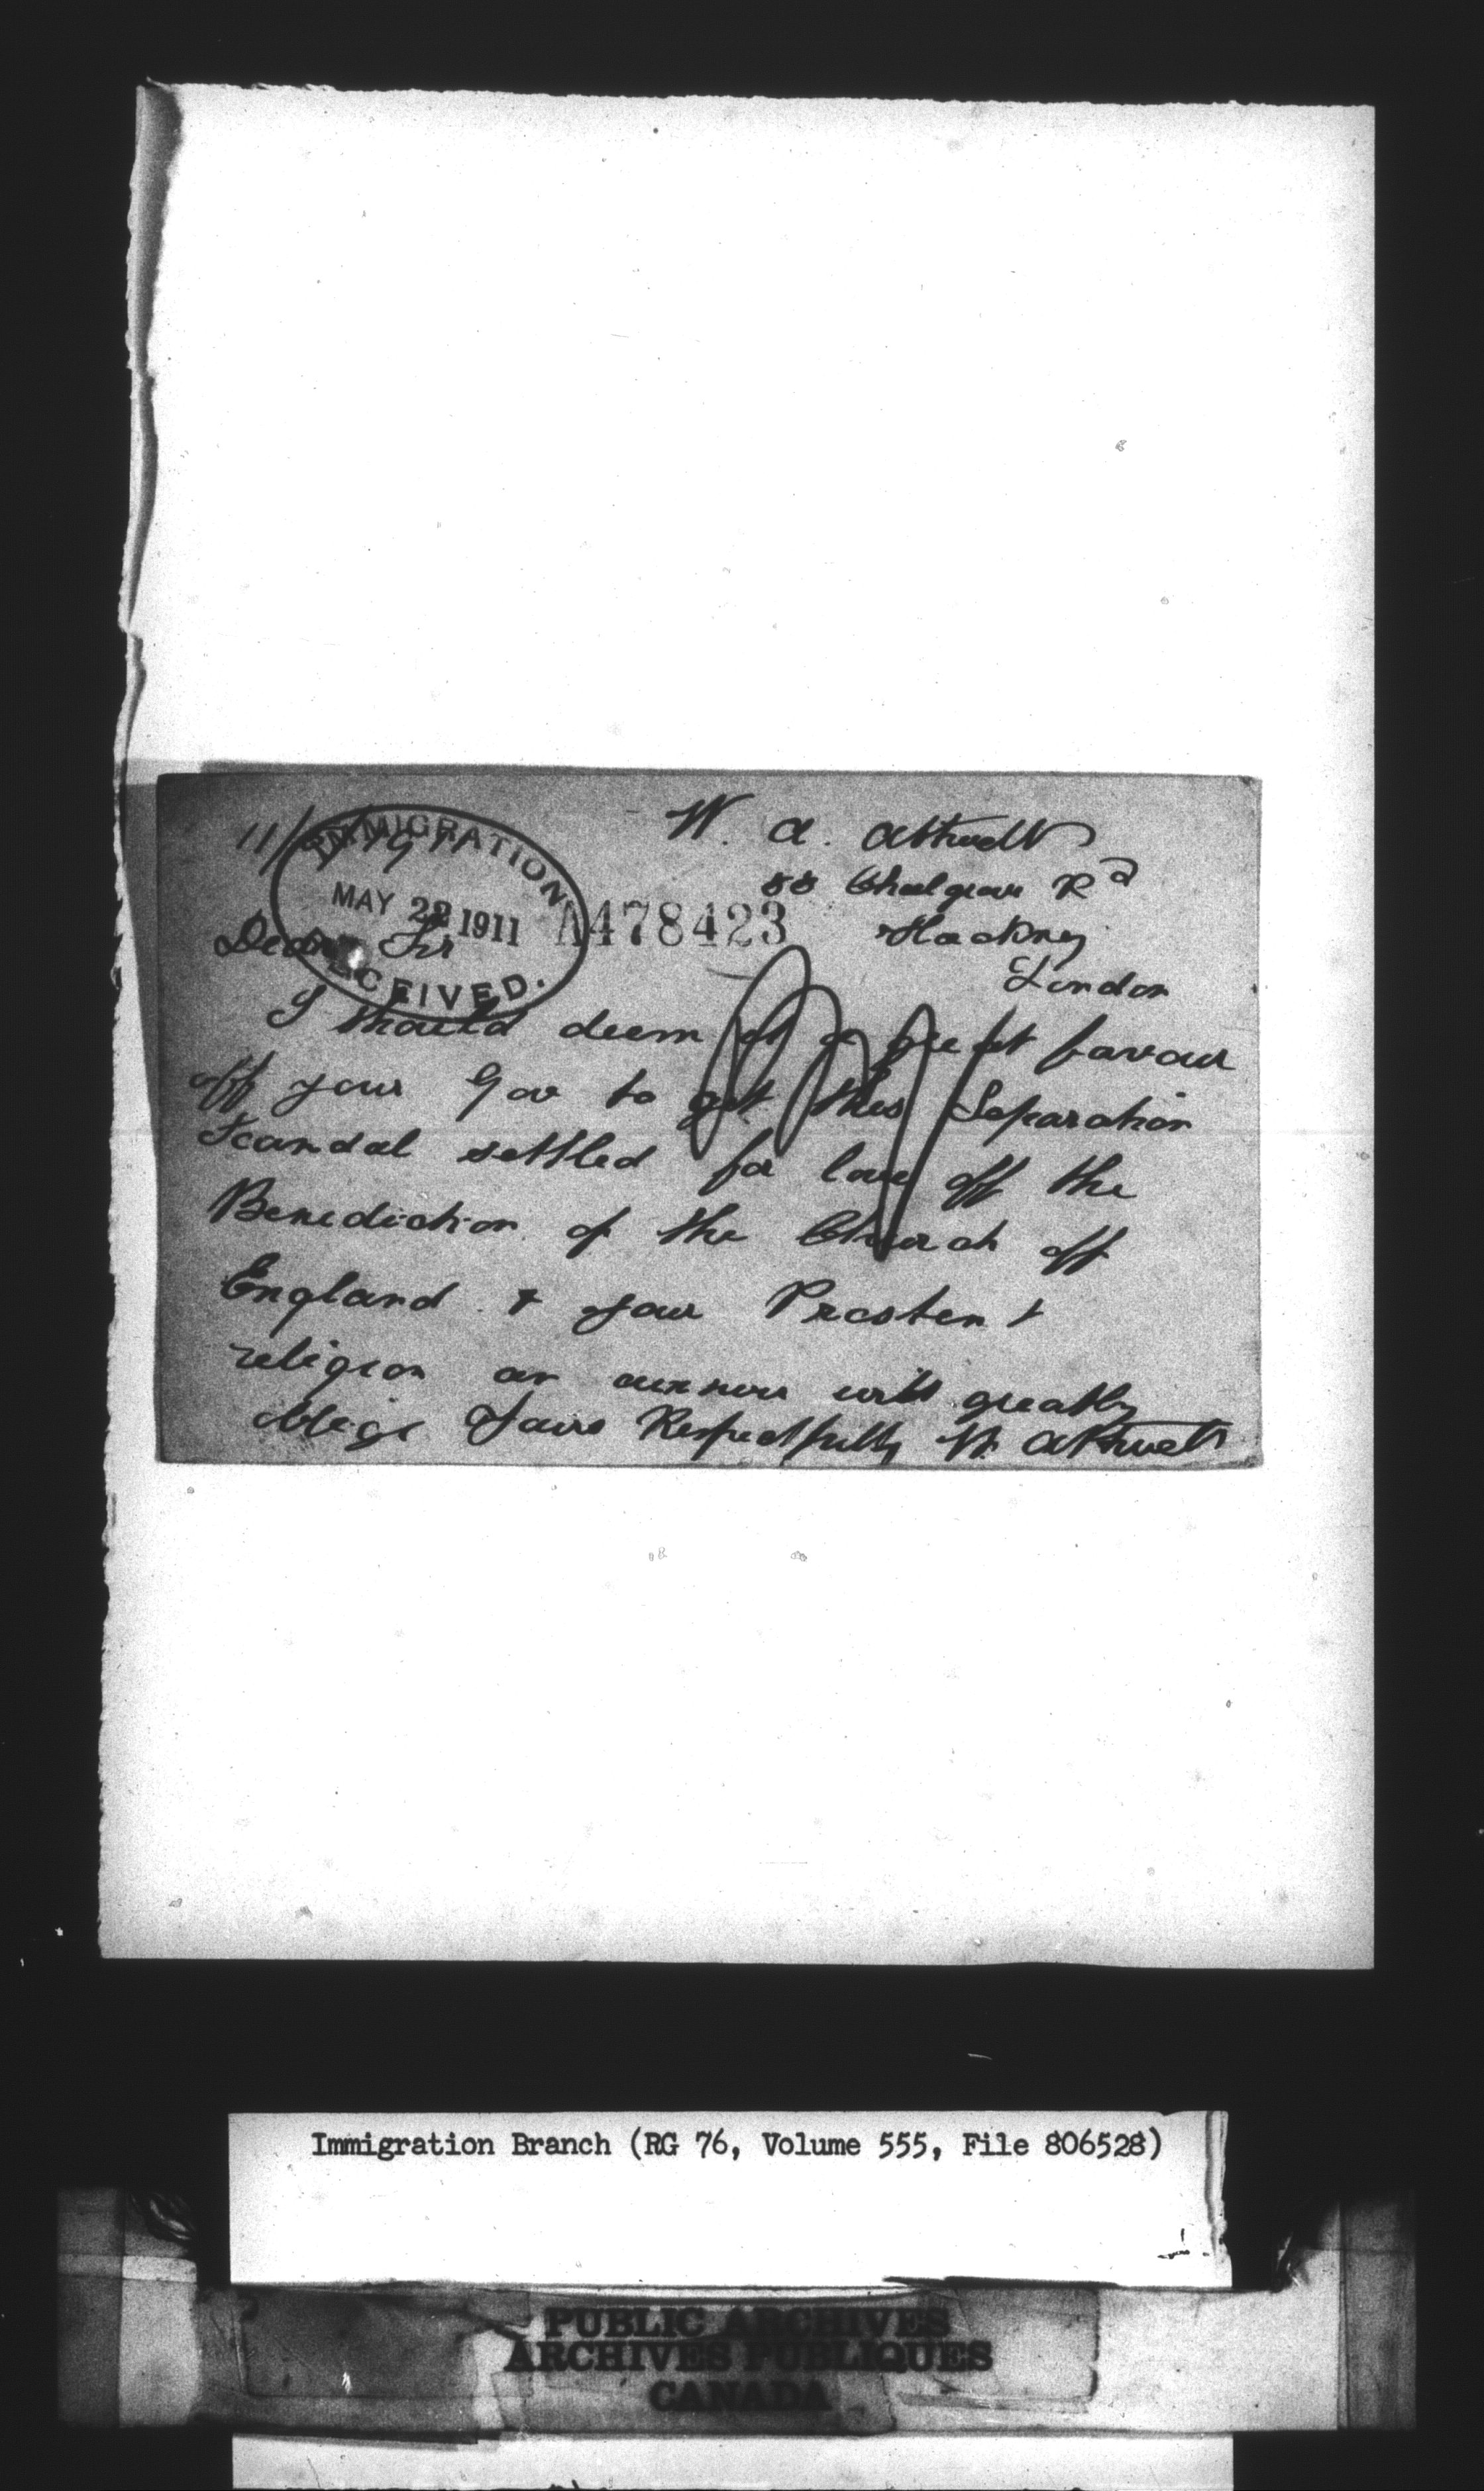 W. A. Attwell
11/5/1911
88 Chalgrove Rd
IMMIGRATION
MAY 22 1911
RECEIVED.
A478423
Hackney
London
Dear Sir
I should deem it a great favour
off your Gov to get this Separation
Scandal settled for love off the
Benediction of the Church off
England & your Prostent
religion an answer will greatly
oblige Yours Respectfully W. Attwell
Immigration Branch (RG 76, Volume 555, File 806528)
PUBLIC ARCHIVES
ARCHIVES PUBLIQUES
CANADA